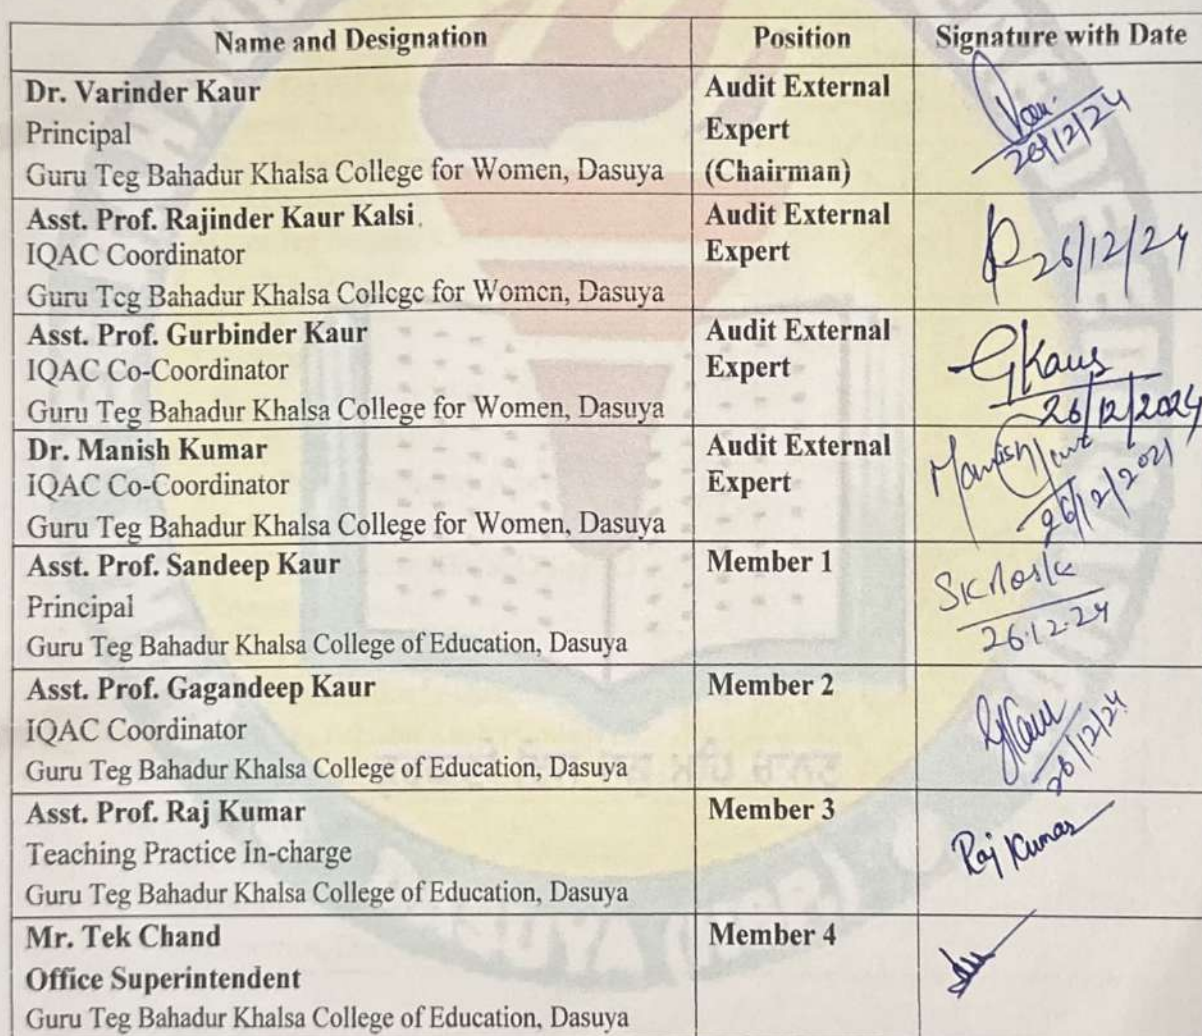 Name and Designation Position Signature with Date
Dr. Varinder Kaur
Principal
Guru Teg Bahadur Khalsa College for Women, Dasuya
Audit External
Expert
(Chairman)
26/12/24
Asst. Prof. Rajinder Kaur Kalsi
IQAC Coordinator
Guru Teg Bahadur Khalsa College for Women, Dasuya
Audit External
Expert
26/12/24
Asst. Prof. Gurbinder Kaur
IQAC Co-Coordinator
Guru Teg Bahadur Khalsa College for Women, Dasuya
Audit External
Expert
GKaur
26/12/2024
Dr. Manish Kumar
IQAC Co-Coordinator
Guru Teg Bahadur Khalsa College for Women, Dasuya
Audit External
Expert
Manish
26/12/2021
Asst. Prof. Sandeep Kaur
Principal
Guru Teg Bahadur Khalsa College of Education, Dasuya
Member 1
26.12.24
Asst. Prof. Gagandeep Kaur
IQAC Coordinator
Guru Teg Bahadur Khalsa College of Education, Dasuya
Member 2
GKaur
26/12/24
Asst. Prof. Raj Kumar
Teaching Practice In-charge
Guru Teg Bahadur Khalsa College of Education, Dasuya
Member 3
Raj Kumar
Mr. Tek Chand
Office Superintendent
Guru Teg Bahadur Khalsa College of Education, Dasuya
Member 4